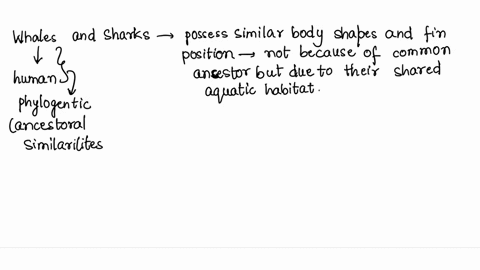 Whales and Sharks → possess similar body shapes and fin
position → not because of common
ansestor but due to their shared
aquatic habitat.
human
phylogentic
(ancestoral
similarilites